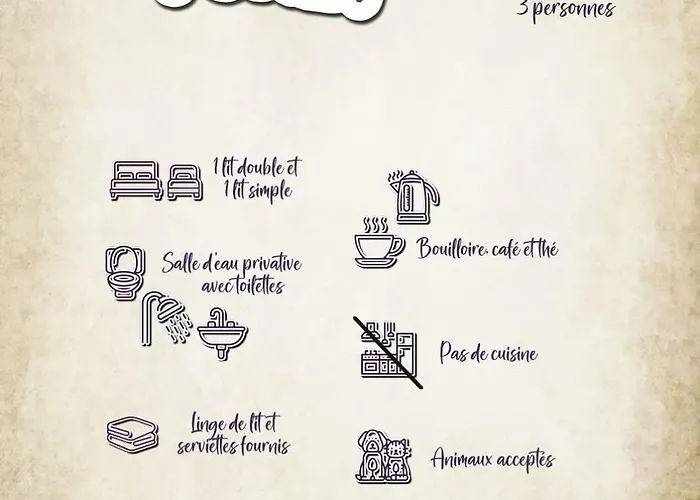 3 personnes
1 lit double et
1 lit simple
Bouilloire, café et thé
Salle d'eau privative
avec toilettes
Pas de cuisine
Linge de lit et
serviettes fournis
Animaux acceptés